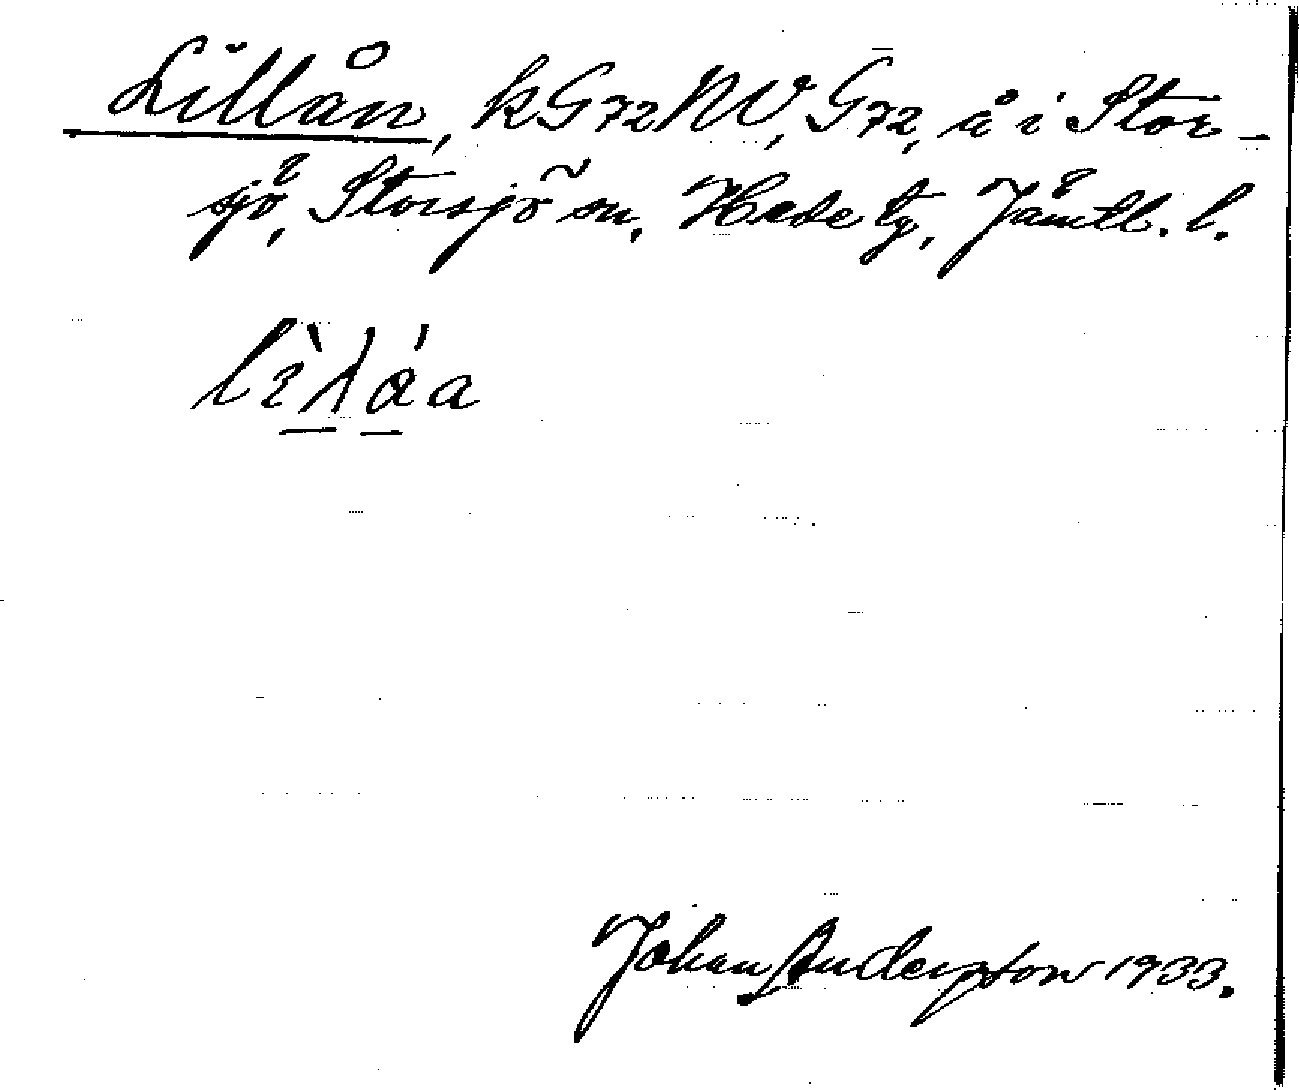 Lillån, kG72NV, G72, å i Stor-
sjö, Storsjö sn, Hede tg, Jämtl. l.
Johan Anderson 1933.